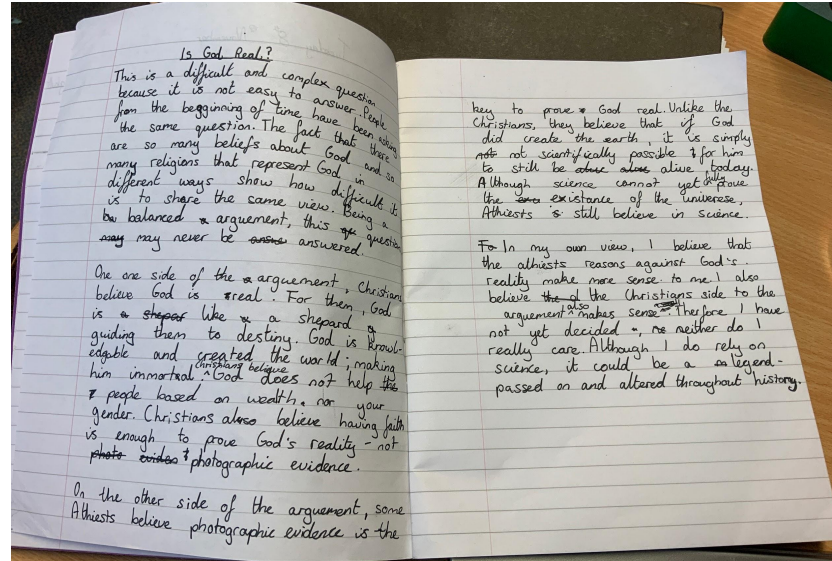 Is God Real?
This is a difficult and complex question
because it is not easy to answer. People
from the beggining of time have been asking
the same question. The fact that there
are so many beliefs about God and so
many religions that represent God in
different ways show how difficult it
is to share the same view. Being a
balanced arguement, this question
may may never be answered.
One one side of the arguement, Christians
believe God is real. For them, God
is a shepar like a shepard
guiding them to destiny. God is knowl-
edgable and created the world; making
him immortal. Christians believe God does not help the
people based on wealth, nor your
gender. Christians also believe having faith
is enough to prove God's reality - not
photo eviden photographic evidence.
On the other side of the arguement, some
Athiests believe photographic evidence is the
key to prove God real. Unlike the
Christians, they believe that if God
did create the earth, it is simply
not not scientifically possible for him
to still be alive today.
Although science cannot yet fully prove
the existance of the univerese,
Athiests still believe in science.
In my own view, I believe that
the athiests reasons against God's
reality make more sense to me. I also
believe the Christians side to the
arguement also makes sense. Therfore I have
not yet decided, neither do I
really care. Although I do rely on
science, it could be a legend-
passed on and altered throughout history.